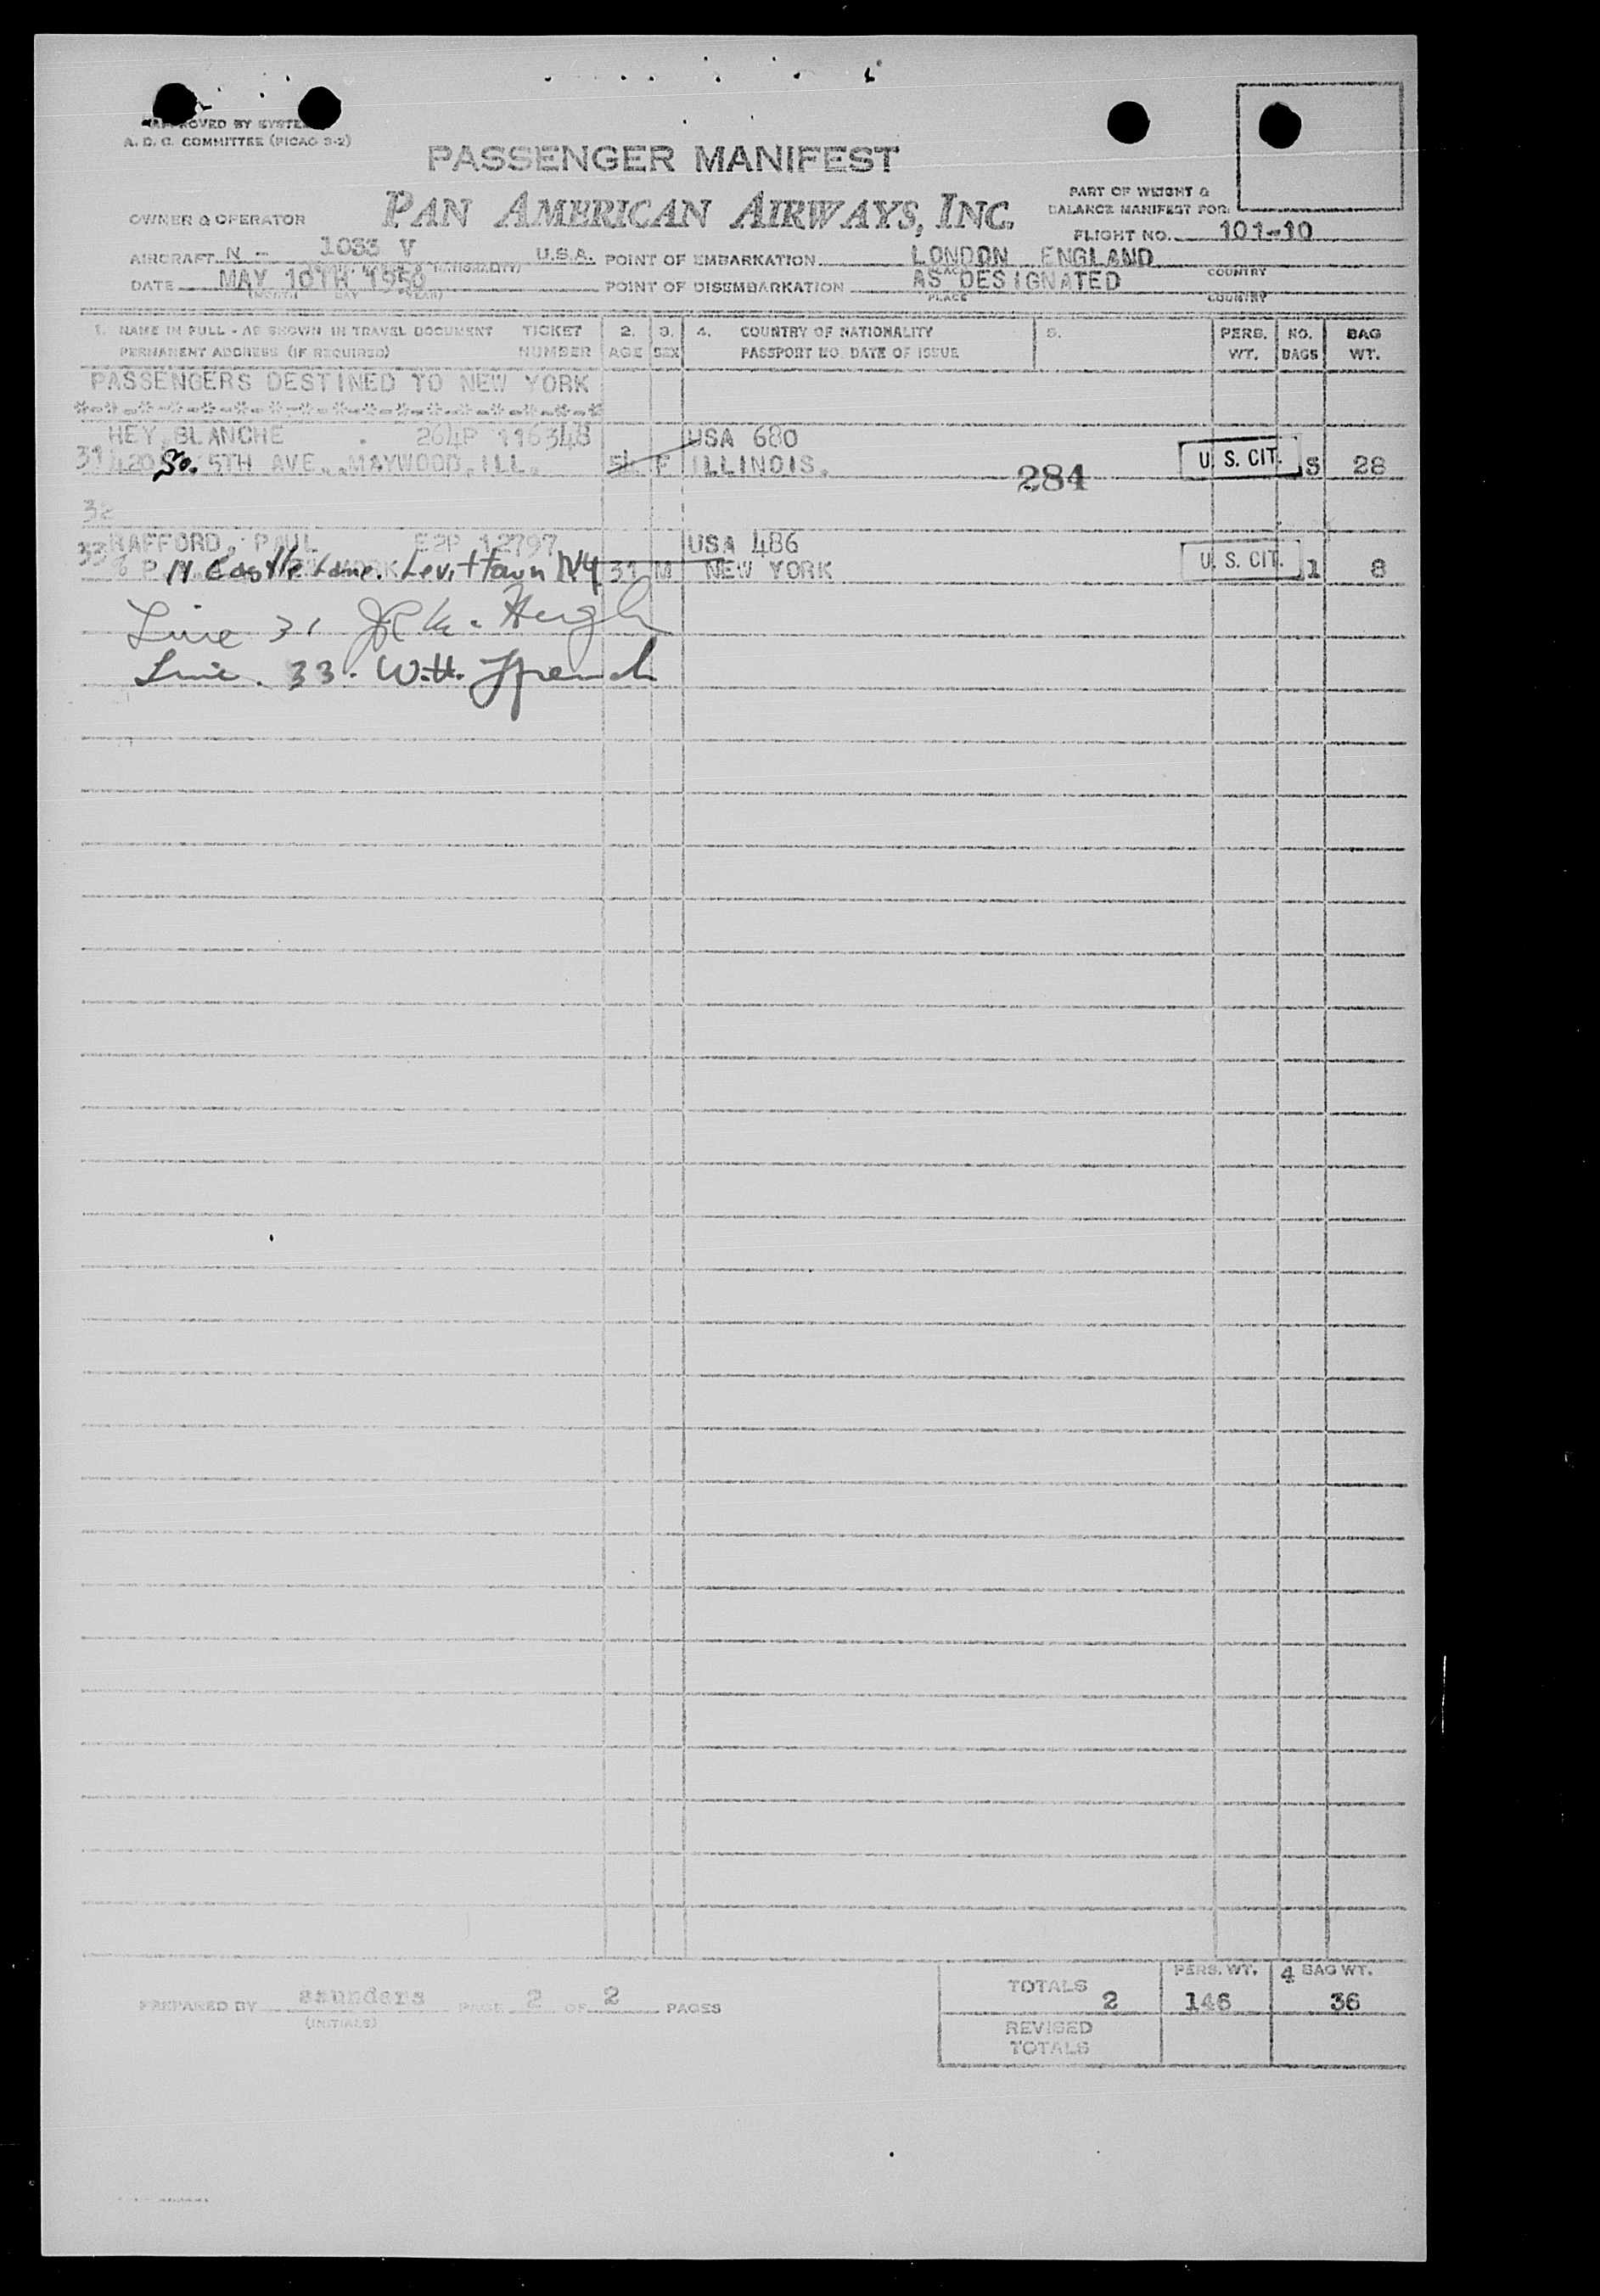 APPROVED BY SYSTEM
A. D. C. COMMITTEE (PICAO 9-2)
PASSENGER MANIFEST
OWNER & OPERATOR PAN AMERICAN AIRWAYS, INC.
PART OF WEIGHT &
BALANCE MANIFEST FOR:
FLIGHT NO. 101-10
AIRCRAFT N - 1033 V U.S.A. POINT OF EMBARKATION LONDON ENGLAND
NATIONALITY) PLACE COUNTRY
DATE MAY 10TH 1950 POINT OF DISEMBARKATION AS DESIGNATED
(MONTH DAY YEAR) PLACE COUNTRY
1. NAME IN FULL - AS SHOWN IN TRAVEL DOCUMENT TICKET 2. 3. 4. COUNTRY OF NATIONALITY 5. PERS. NO. BAG
PERMANENT ADDRESS (IF REQUIRED) NUMBER AGE SEX PASSPORT NO. DATE OF ISSUE WT. BAGS WT.
PASSENGERS DESTINED TO NEW YORK
*-*-*-*-*-*-*-*-*-*-*-*-*-*-*-*
HEY, BLANCHE 264P 116348 USA 680
31 420 So. 5TH AVE., MAYWOOD, ILL. F ILLINOIS. 284 U. S. CIT. 28
32
33 HAFFORD, PAUL E2P 12797 USA 486
Castle Lane. Levittown NY 31 M NEW YORK U. S. CIT. 1 8
Line 31
Line. 33. W.H. French
PREPARED BY saunders PAGE 2 OF 2 PAGES
(INITIALS)
TOTALS 2 PERS. WT. 146 4 BAG WT. 36
REVISED
TOTALS